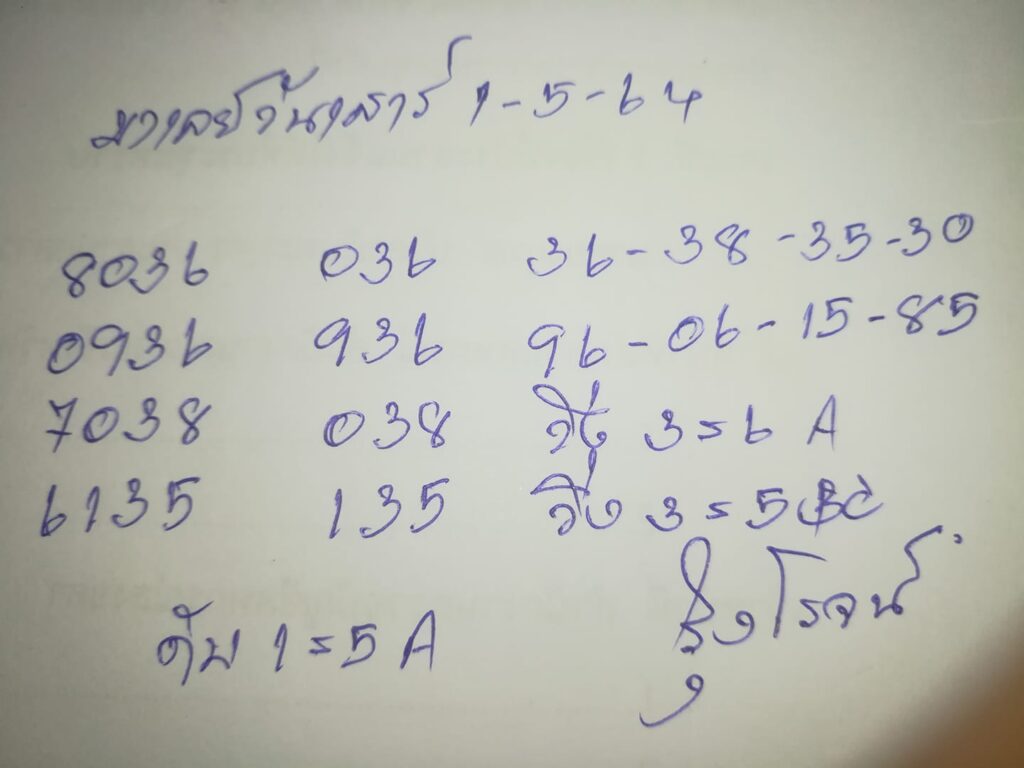 มาเลย์วันเสาร์ 1-5-64
8036 036 36-38-35-30
0936 936 96-06-15-85
7038 038 วิ่ง 3=6 A
6135 135 วิ่ง 3=5 BC
ดับ 1=5 A รุ่งโรจน์